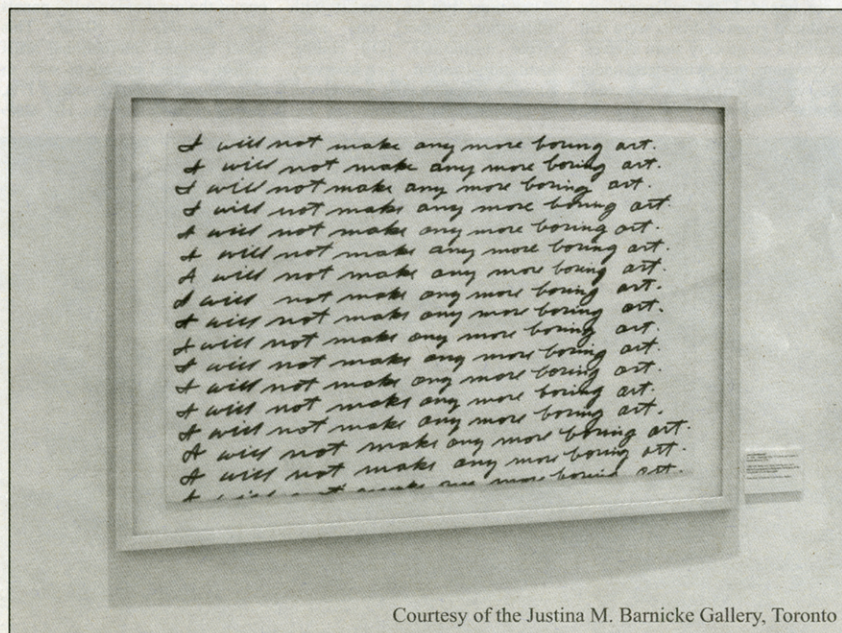 I will not make any more boring art.
I will not make any more boring art.
I will not make any more boring art.
I will not make any more boring art.
I will not make any more boring art.
I will not make any more boring art.
I will not make any more boring art.
I will not make any more boring art.
I will not make any more boring art.
I will not make any more boring art.
I will not make any more boring art.
I will not make any more boring art.
I will not make any more boring art.
I will not make any more boring art.
I will not make any more boring art.
I will not make any more boring art.
I will not make any more boring art.
Courtesy of the Justina M. Barnicke Gallery, Toronto